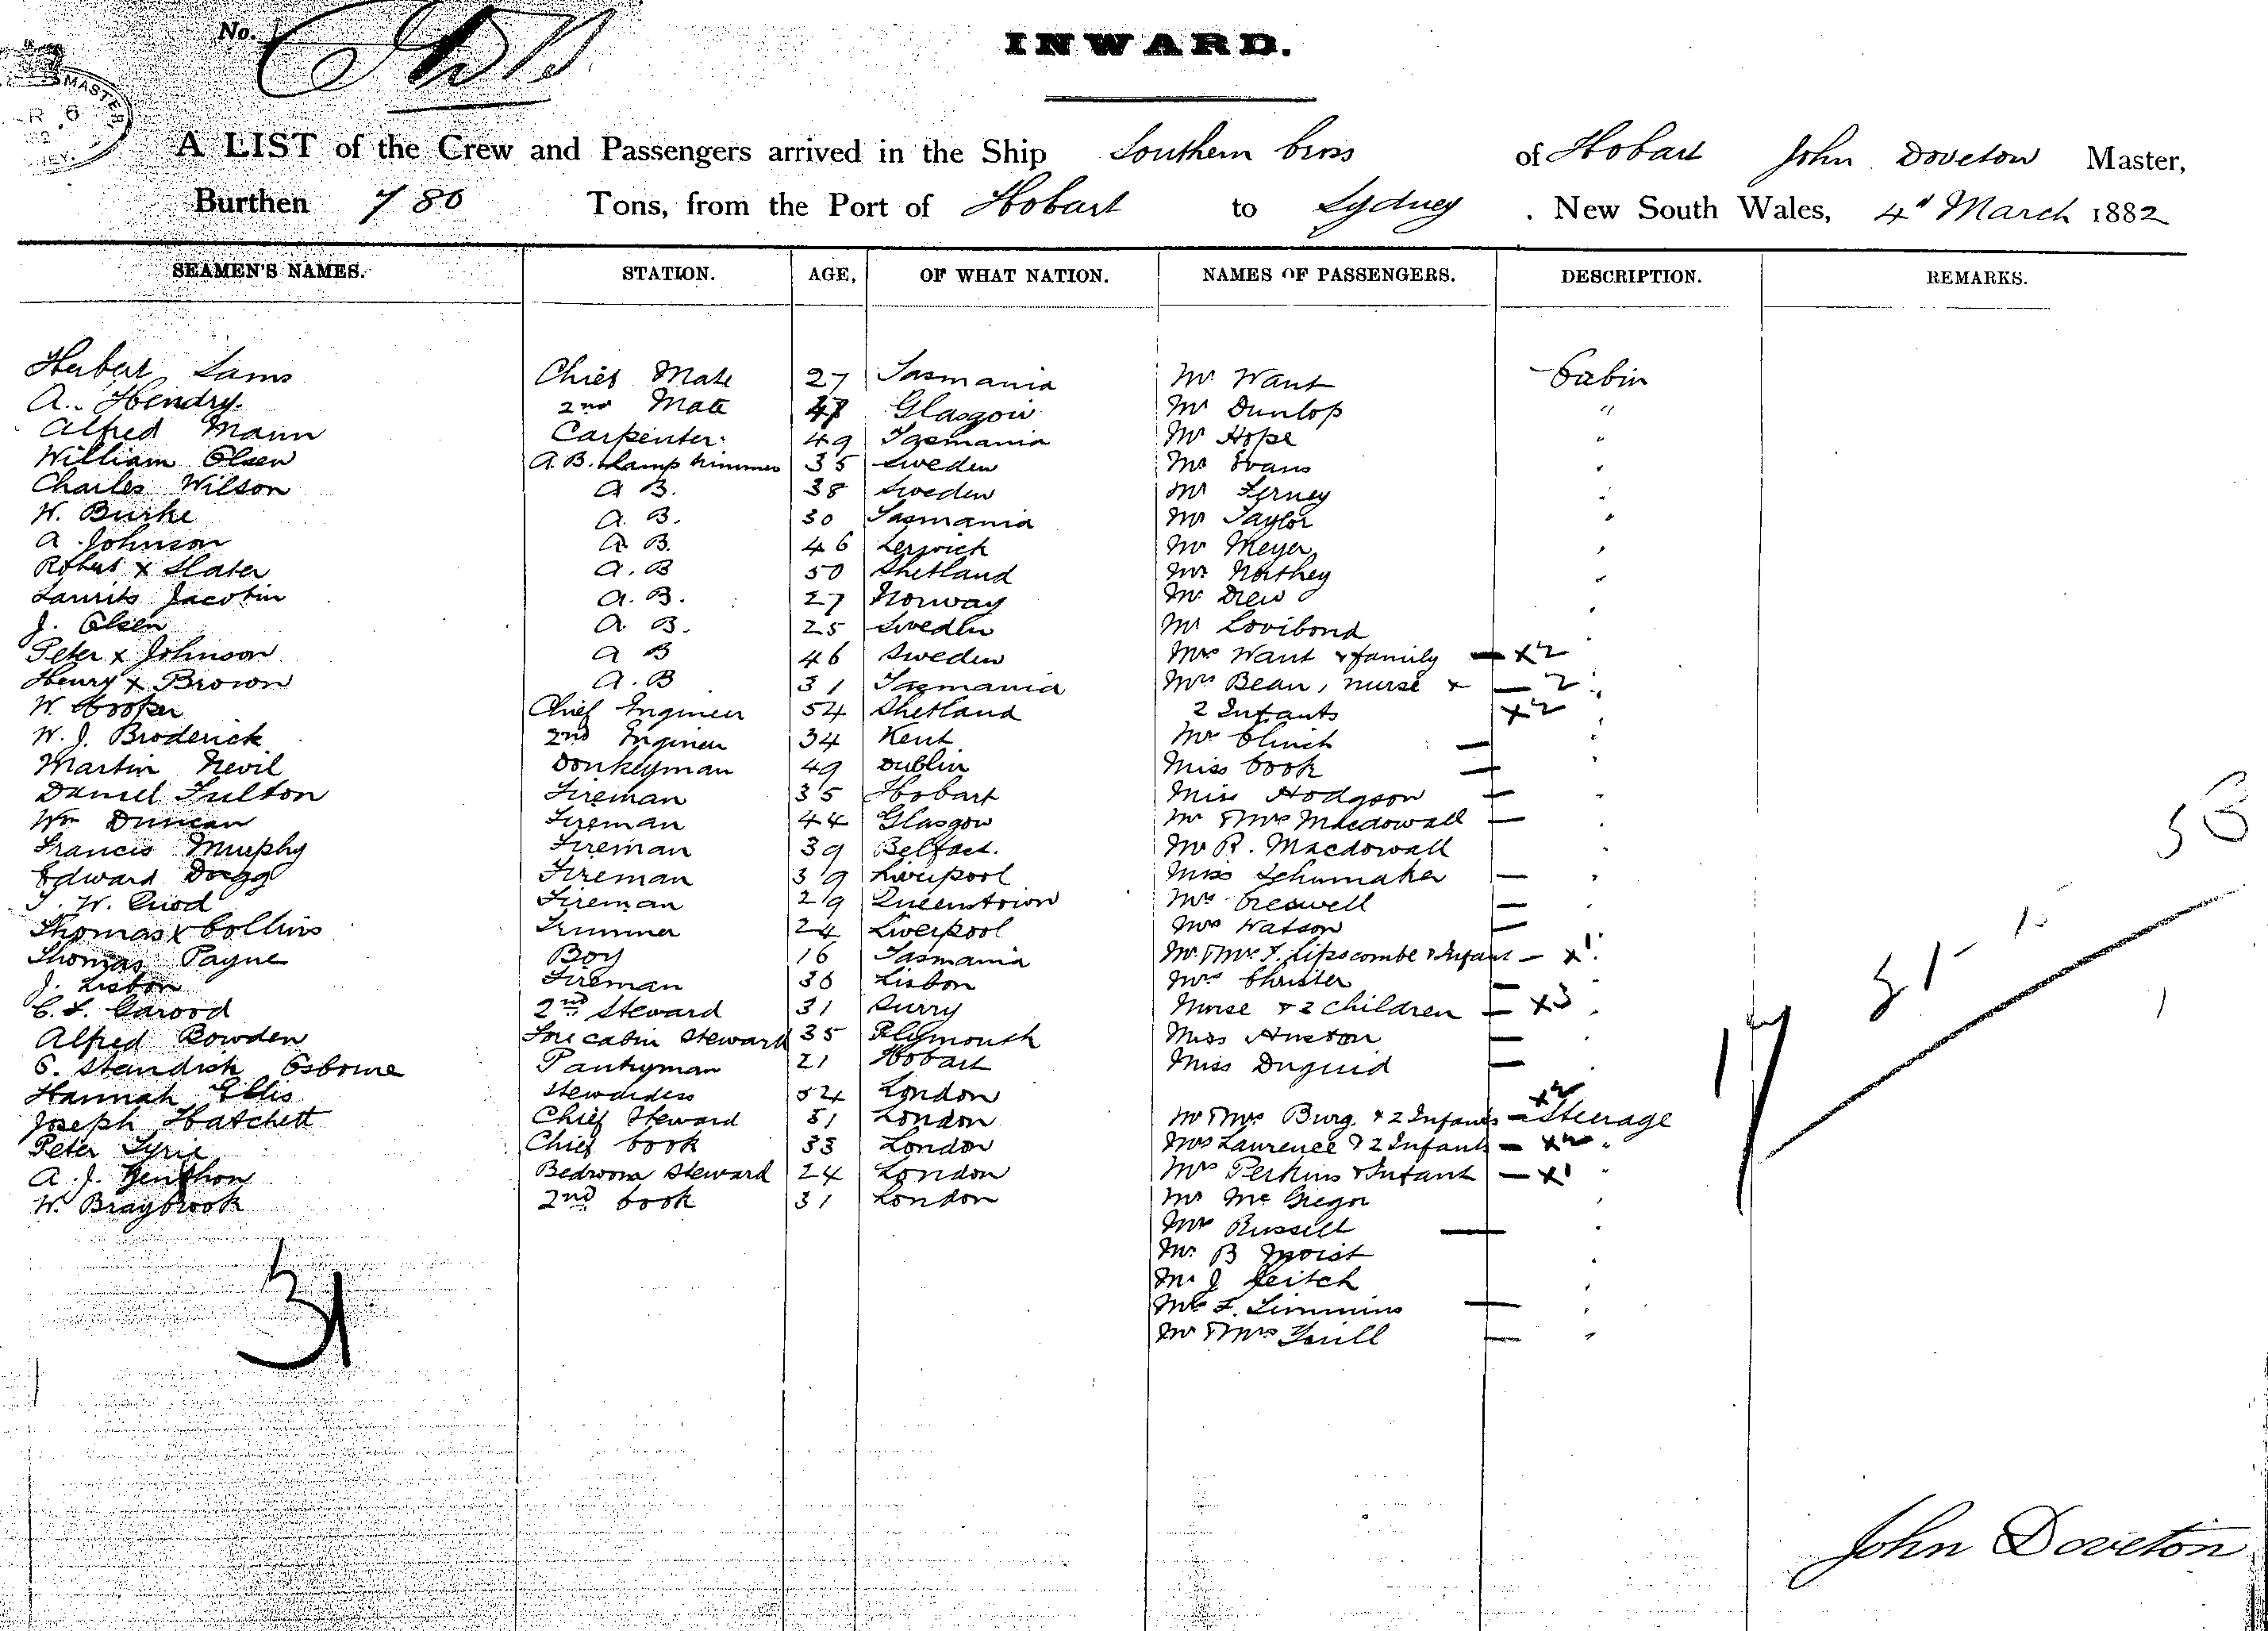 No.
INWARD.
A LIST of the Crew and Passengers arrived in the Ship Southern Cross of Hobart John Doveton Master,
Burthen 780 Tons, from the Port of Hobart to Sydney . New South Wales, 4th March 1882
SEAMEN'S NAMES. STATION. AGE, OF WHAT NATION. NAMES OF PASSENGERS. DESCRIPTION. REMARKS.
Herbert Sams Chief Mate 27 Tasmania Mr Want Cabin
A. Hendry 2nd Mate Glasgow Mr Dunlop "
Alfred Mann Carpenter 49 Tasmania Mr Hope "
William Olsen A.B. Lamp trimmer 35 Sweden Mr Evans "
Charles Wilson A B. 38 Sweden Mr Ferney "
W. Burke A. B. 30 Tasmania Mr Taylor "
A Johnson A B. 46 Lerwich Mr Meyer "
Robert x Slater A. B 50 Shetland Mr Northey "
Laurits Jacobin A. B. 27 Norway Mr Drew "
J. Olsen A B. 25 Sweden Mr Lovibond
Peter x Johnson A B 46 Sweden Mrs Want & family — x2
Henry x Brown A. B 31 Tasmania Mrs Bean, nurse & — 2 "
W. Cooper Chief Engineer 54 Shetland 2 Infants x2 "
W. J. Broderick 2nd Engineer 34 Kent Mr Clinch — "
Martin Nevil Donkeyman 49 Dublin Miss Cook — "
Daniel Fulton Fireman 35 Hobart Miss Hodgson — "
Wm Duncan Fireman 44 Glasgow Mr & Mrs Macdowall — "
Francis Murphy Fireman 39 Belfast. Mr R. Macdowall
Edward Dagg Fireman 39 Liverpool Miss Schumaker — "
W. Fireman 29 Queenstown Mrs Creswell — "
Thomas x Collins Trimmer 24 Liverpool Mrs Watson —
Thomas Payne Boy 16 Tasmania Mr & Mrs T. Lipscombe & Infant — x1 "
J. Lisbon Fireman 36 Lisbon Mrs —
C. F. Garood 2nd Steward 31 Surry Nurse & 2 children — x3 "
Alfred Bowden Fore cabin Steward 35 Plymouth Miss Huston — "
G. Standish Osborne Pantryman 21 Hobart Miss Duguid — "
Hannah Ellis Stewardess 52 London
Joseph Hatchett Chief Steward 51 London Mr & Mrs Burg. & 2 Infants — x2 Steerage
Peter Syrie Chief Cook 33 London Mrs Laurence & 2 Infants — x2 "
A. J. Bedroom Steward 24 London Mrs Perkins & Infant — x1 "
W. Braybrook 2nd Cook 31 London Mr Mc Gregor "
Mr Russell — "
Mr B Moist "
Mr J Leitch "
F. Simmins — "
Mr & Mrs —  "
31
17
51
John Doveton